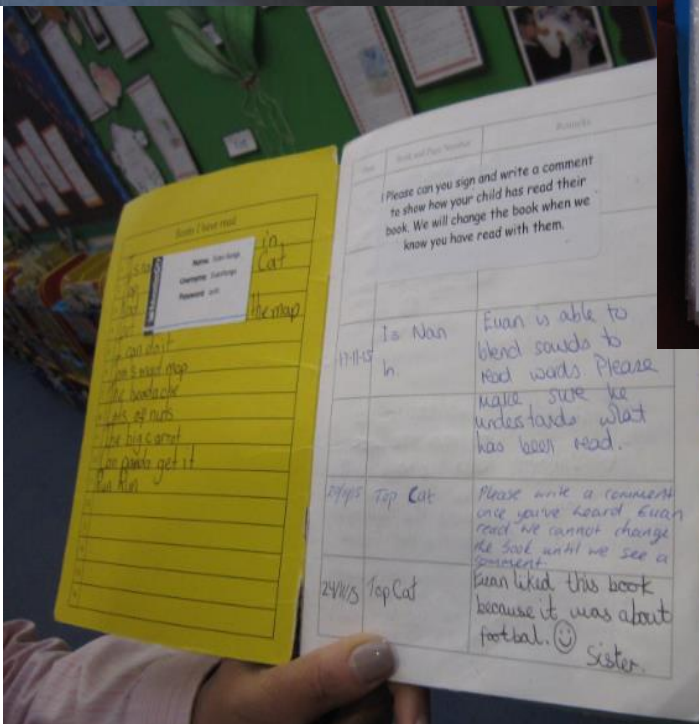 Books I have read
in
Cat
Name
Username
Password
the map
I can do it
Tom's mad map
The headache
Lots of nuts
The big carrot
Can panda get it
Run Run
Date
Book and Page Number
Remarks
Please can you sign and write a comment
to show how your child has read their
book. We will change the book when we
know you have read with them.
17-11-15
Is Nan
Euan is able to
blend sounds to
read words Please
make sure he
understands what
has been read.
24/11/15
Top Cat
Please write a comment
once you've heard Euan
read. We cannot change
the book until we see a
comment.
24/11/15
Top Cat
Euan liked this book
because it was about
footbal. ☺
Sister.